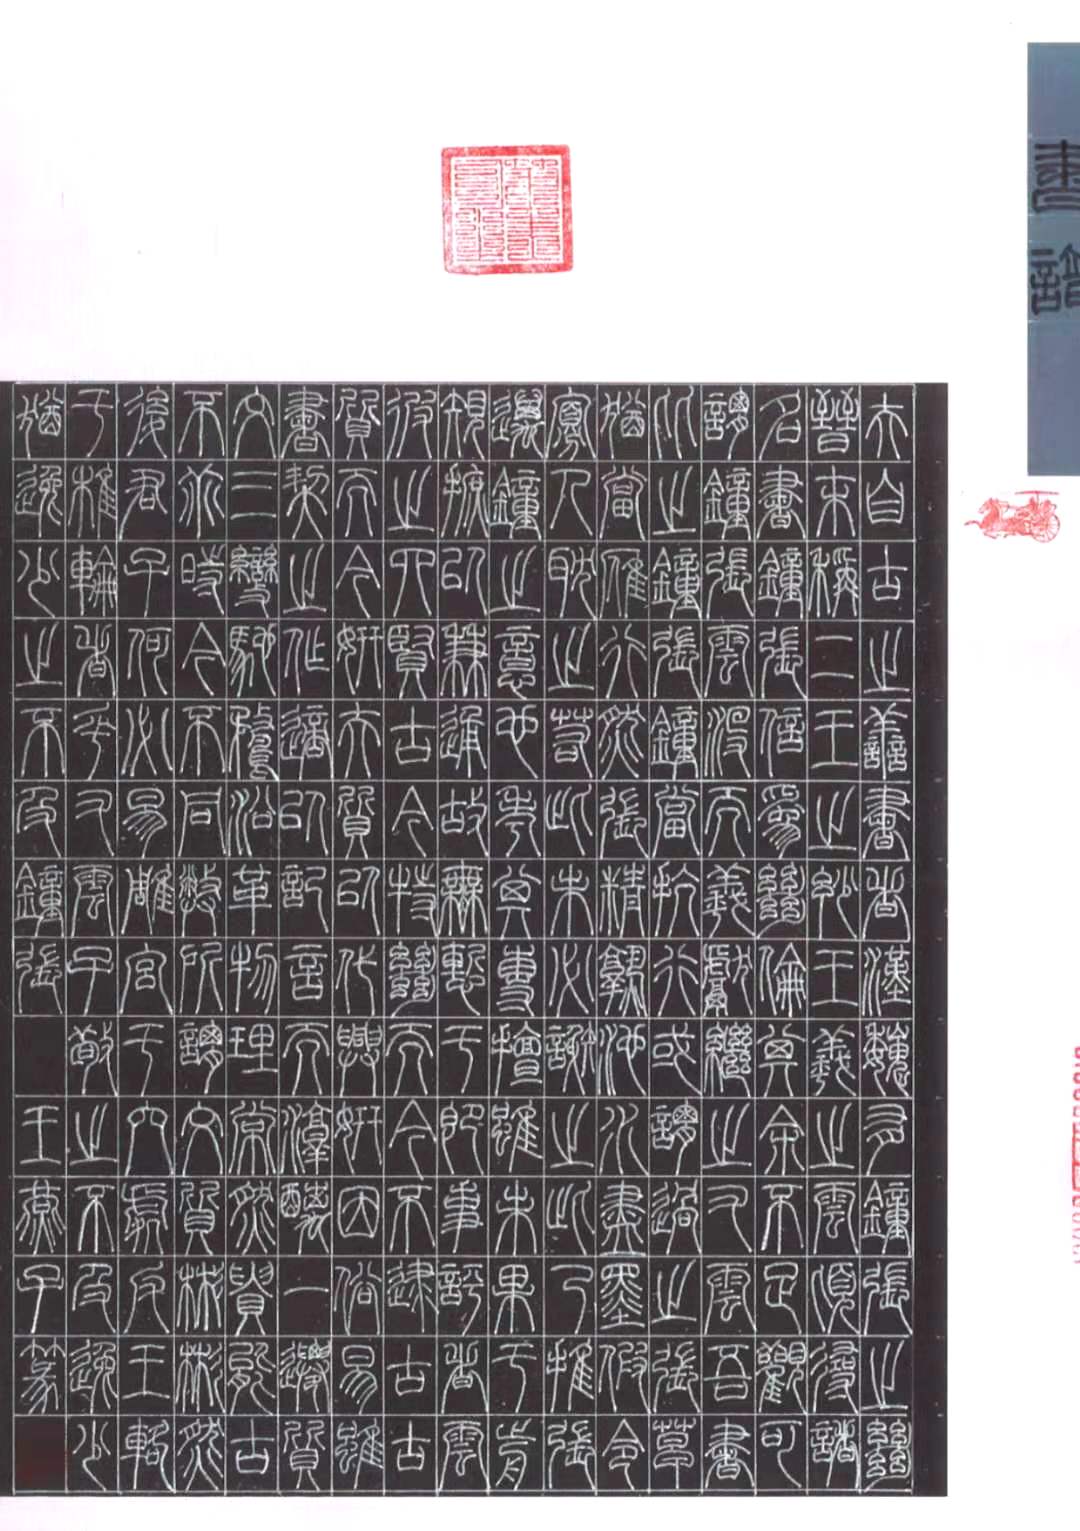 書譜
夫自古之善書者漢魏有鍾張之絕
晉末稱二王之妙王羲之雲頃尋諸
名書鍾張信為絕倫其餘不足觀可
謂鍾張雲沒而羲獻繼之又雲吾書
比之鍾張鍾當抗行或謂過之張草
猶當雁行然張精熟池水盡墨假令
寡人耽之若此未必謝之此乃推張
邁鍾之意也考其專擅雖未果于前
規摭以兼通故無慚于即事評者雲
彼之四賢古今特絕而今不逮古古
質而今妍夫質以代興妍因俗易雖
書契之作適以記言而淳醨一遷質
文三變馳騖沿革物理常然貴能古
不乖時今不同弊所謂文質彬彬然
後君子何必易雕宮于穴處反玉輅
于椎輪者乎又雲子敬之不及逸少
猶逸少之不及鍾張 王燕子篆